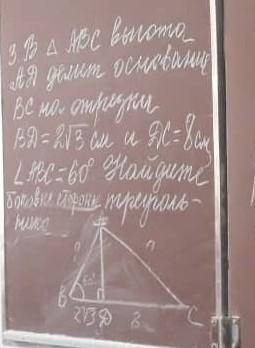 3. В △ АВС высота
АД делит основание
ВС на отрезки
ВD = 2√3 см и DC = 8 см
∠ABC = 60° Найдите
боковые стороны треуголь-
ника
A
? ?
60°
B D C
2√3 8